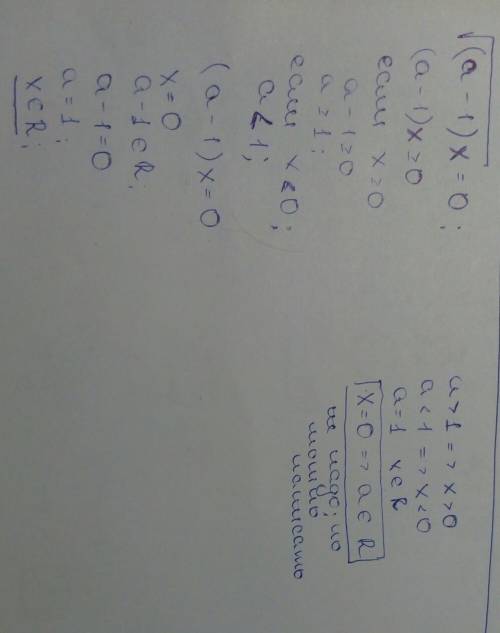 √(a-1)x = 0;
(a-1)x ≥ 0
если x ≥ 0
a-1 ≥ 0
a ≥ 1;
если x < 0;
a < 1;
(a-1)x = 0
x = 0
a-1 ∈ R;
a-1 = 0
a = 1;
x ∈ R;
a > 1 => x > 0
a < 1 => x < 0
a = 1 x ∈ R
x = 0 => a ∈ R
не надо; но
можно
написать